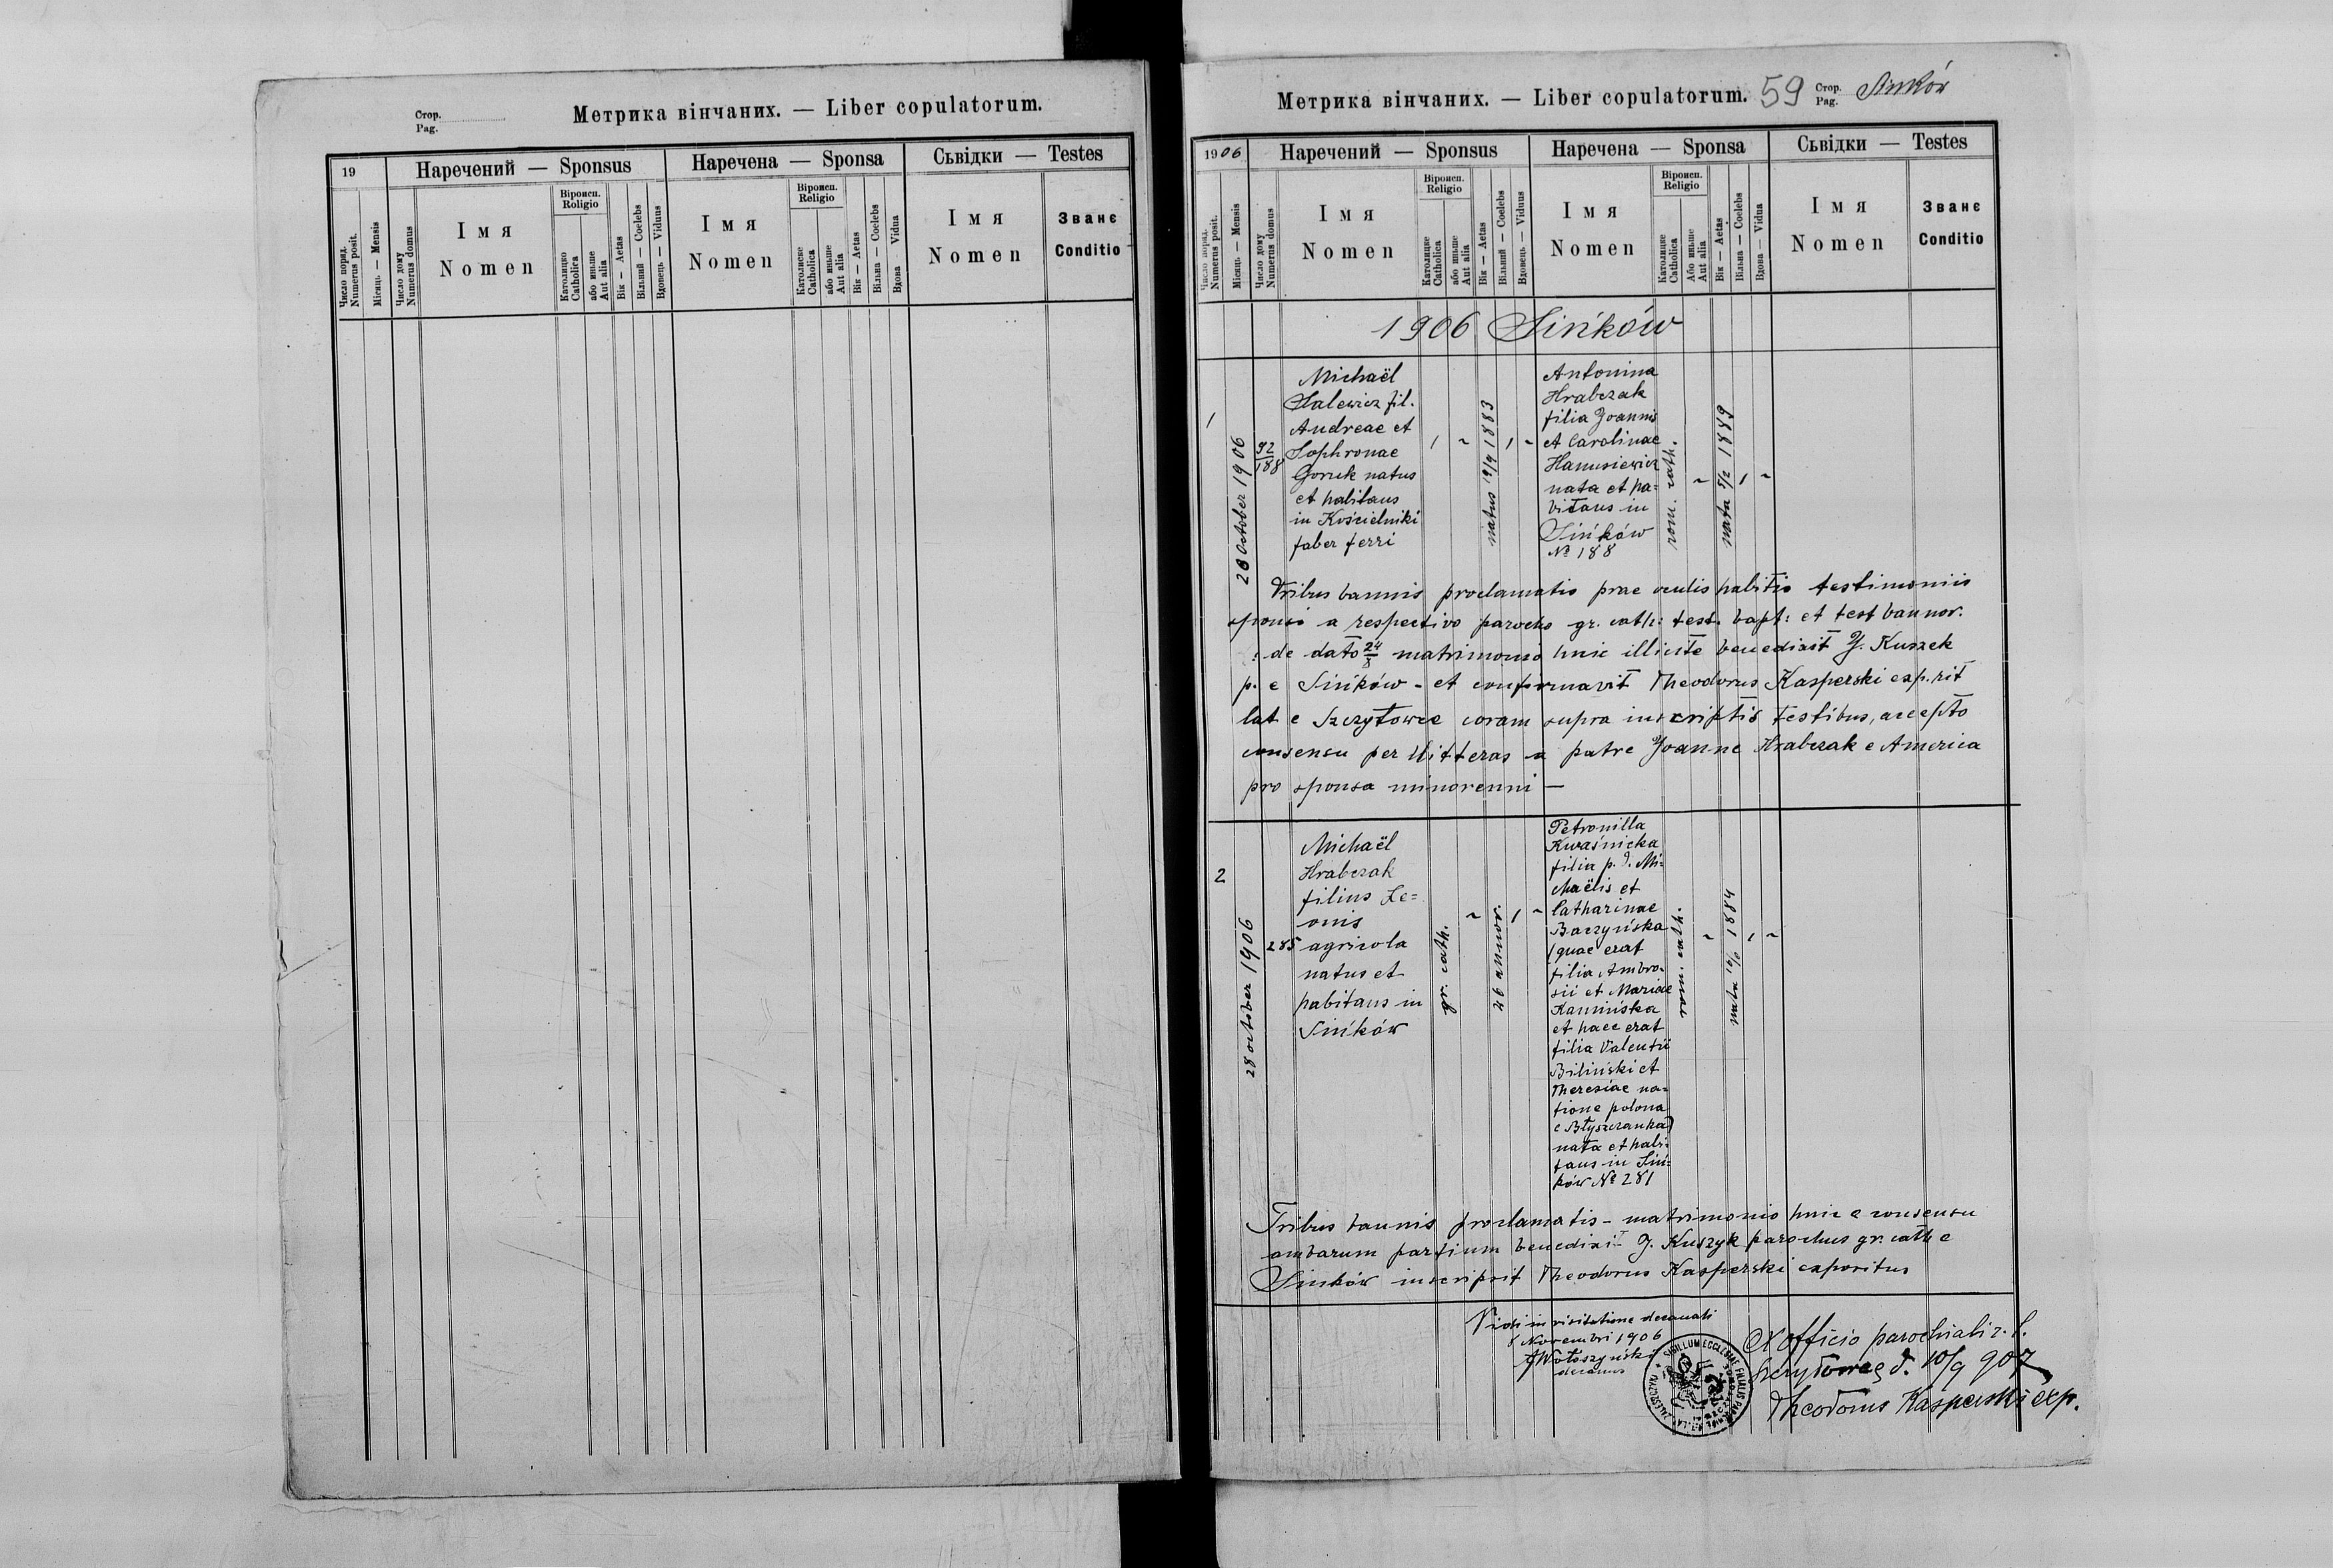 Стор.
Pag.
Метрика вінчаних. — Liber copulatorum.
19
Наречений — Sponsus
Наречена — Sponsa
Сьвідки — Testes
Число поряд.
Numerus posit.
Місяць — Mensis
Число дому
Numerus domus
Імя
Nomen
Віроисп.
Roligio
Католицке
Catholica
або иньше
Aut alia
Вік — Aetas
Вільний — Coelebs
Вдовець — Viduus
Імя
Nomen
Віроисп.
Religio
Католицке
Catholica
або иньше
Aut alia
Вік — Aetas
Вільна — Coelebs
Вдова Vidua
Імя
Nomen
Званє
Conditio
Метрика вінчаних. — Liber copulatorum. 59 Стор.
Pag. Sinków
1906
Наречений — Sponsus
Наречена — Sponsa
Сьвідки — Testes
Число поряд.
Numerus posit.
Місяць — Mensis
Число дому
Numerus domus
Імя
Nomen
Віроисп.
Religio
Католицке
Catholica
або иньше
Aut alia
Вік — Aetas
Вільний — Coelebs
Вдовець — Viduus
Імя
Nomen
Віроисп.
Religio
Католицке
Catholica
Або иньше
Aut alia
Вік — Aetas
Вільна — Coelebs
Вдова — Vidua
Імя
Nomen
Званє
Conditio
1906 Sińków
1
28 October 1906
92
188
Michaël
Halewicz fil.
Andreae et
Sophronae
Goruk natus
et habitans
in Kościelniki
faber ferri
1 ~
natus 19/9 1883
1 ~
Antonina
Hrabczak
filia Joannis
et Carolinae
Hanusiewicz
nata et ha=
bitans in
Sińków
№ 188
rom. cath.
~
nata 5/2 1889
1 ~
Tribus bannis proclamatis prae oculis habitis testimoniis
sponsi a respectivo parocho gr. cath: test. bapt: et test bannor.
de dato 24/8 matrimonio huic illicite benedixit J. Kuszek
p. e Sińków - et confirmavit Theodorus Kasperski exp. rit
lat e Szczytowce coram supra inscriptis testibus, accepto
consensu per litteras a patre Joanne Hrabczak e America
pro sponsa minorenni —
2
28 october 1906
285
Michaël
Hrabczak
filius Le=
onis
agricola
natus et
habitans in
Sińków
gr. cath.
~
26 annor.
1 ~
Petronilla
Kwaśnicka
filia p. d. Mi=
chaëlis et
Catharinae
Baczyńska
(quae erat
filia Ambro=
sii et Mariae
Kamińska
et haec erat
filia Valentii
Biliński et
Theresiae na=
tione polona
e Błyszczanka)
nata et habi=
tans in Siń=
ków № 281
rom. cath.
~
nata 10/ 1884
1 ~
Tribus bannis proclamatis - matrimonio huic e consensu
ambarum partium benedixit J. Kuszyk parochus gr. cath e
Sinków inscripsit Theodorus Kasperski expositus
Vidi in visitatione decanali
Novembri 1906
Wołoszyński
decanus
SIGILLUM ECCLESIAE FILIALIS
Ex officio parochiali r. l.
Szczytowce d. 10/9 907
Theodorus Kasperski exp.